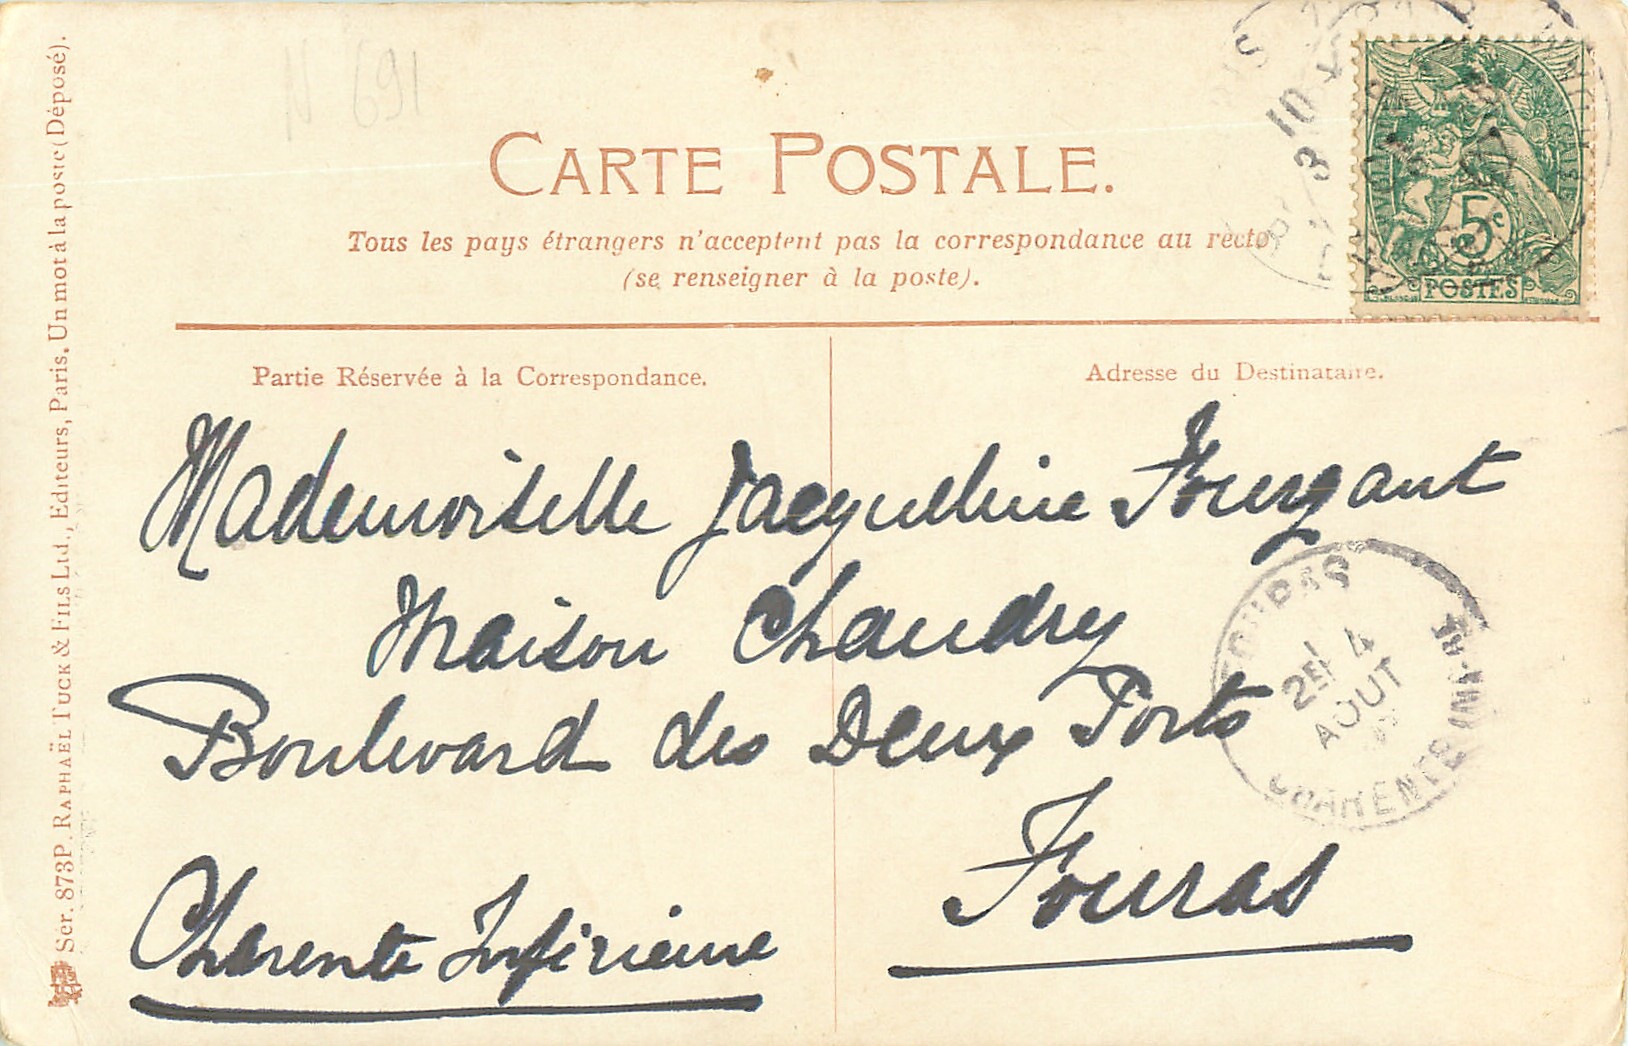 N 691
CARTE POSTALE.
Tous les pays étrangers n'acceptent pas la correspondance au recto
(se renseigner à la poste).
RÉPUBLIQUE FRANÇAISE
5c
POSTES
3 10
Partie Réservée à la Correspondance.
Adresse du Destinataire.
Mademoiselle Jacqueline Fourgant
Maison Chaudry
Boulevard des Deux Ports
Fouras
Charente Inférieure
FOURAS
2E 4
AOUT
CHARENTE INF-RE
Sér. 873P. RAPHAËL TUCK & FILS Ltd., Editeurs, Paris. Un mot à la poste (Déposé).